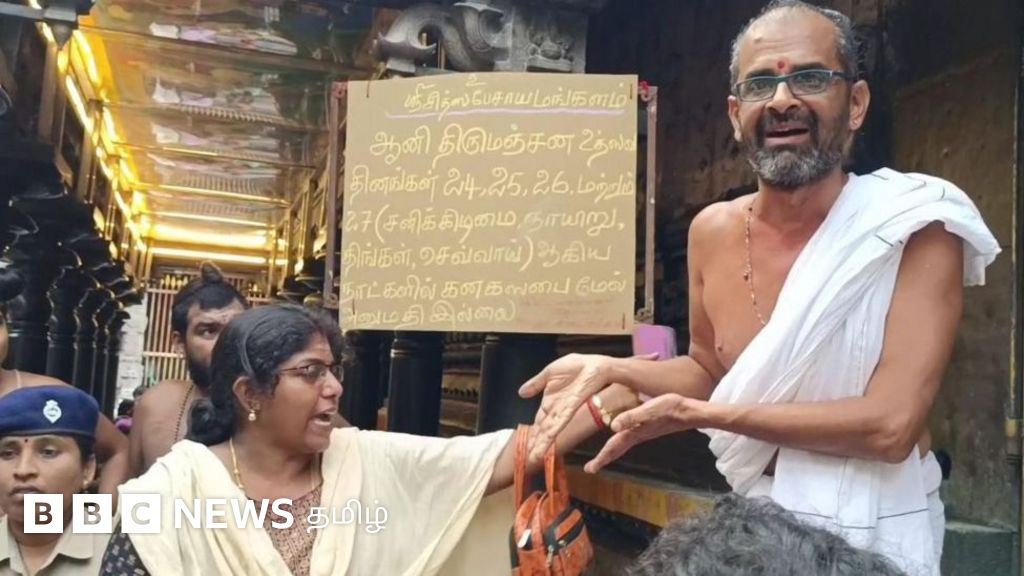 உ
ஸ்ரீசித்ஸபேசாய மங்களம்
ஆனி திருமஞ்சன உத்ஸவ
தினங்கள் 24, 25, 26, மற்றும்
27 (சனிக்கிழமை, ஞாயிறு,
திங்கள், செவ்வாய்) ஆகிய
நாட்களில் கனகஸபை மேல்
அனுமதி இல்லை
BBC NEWS தமிழ்